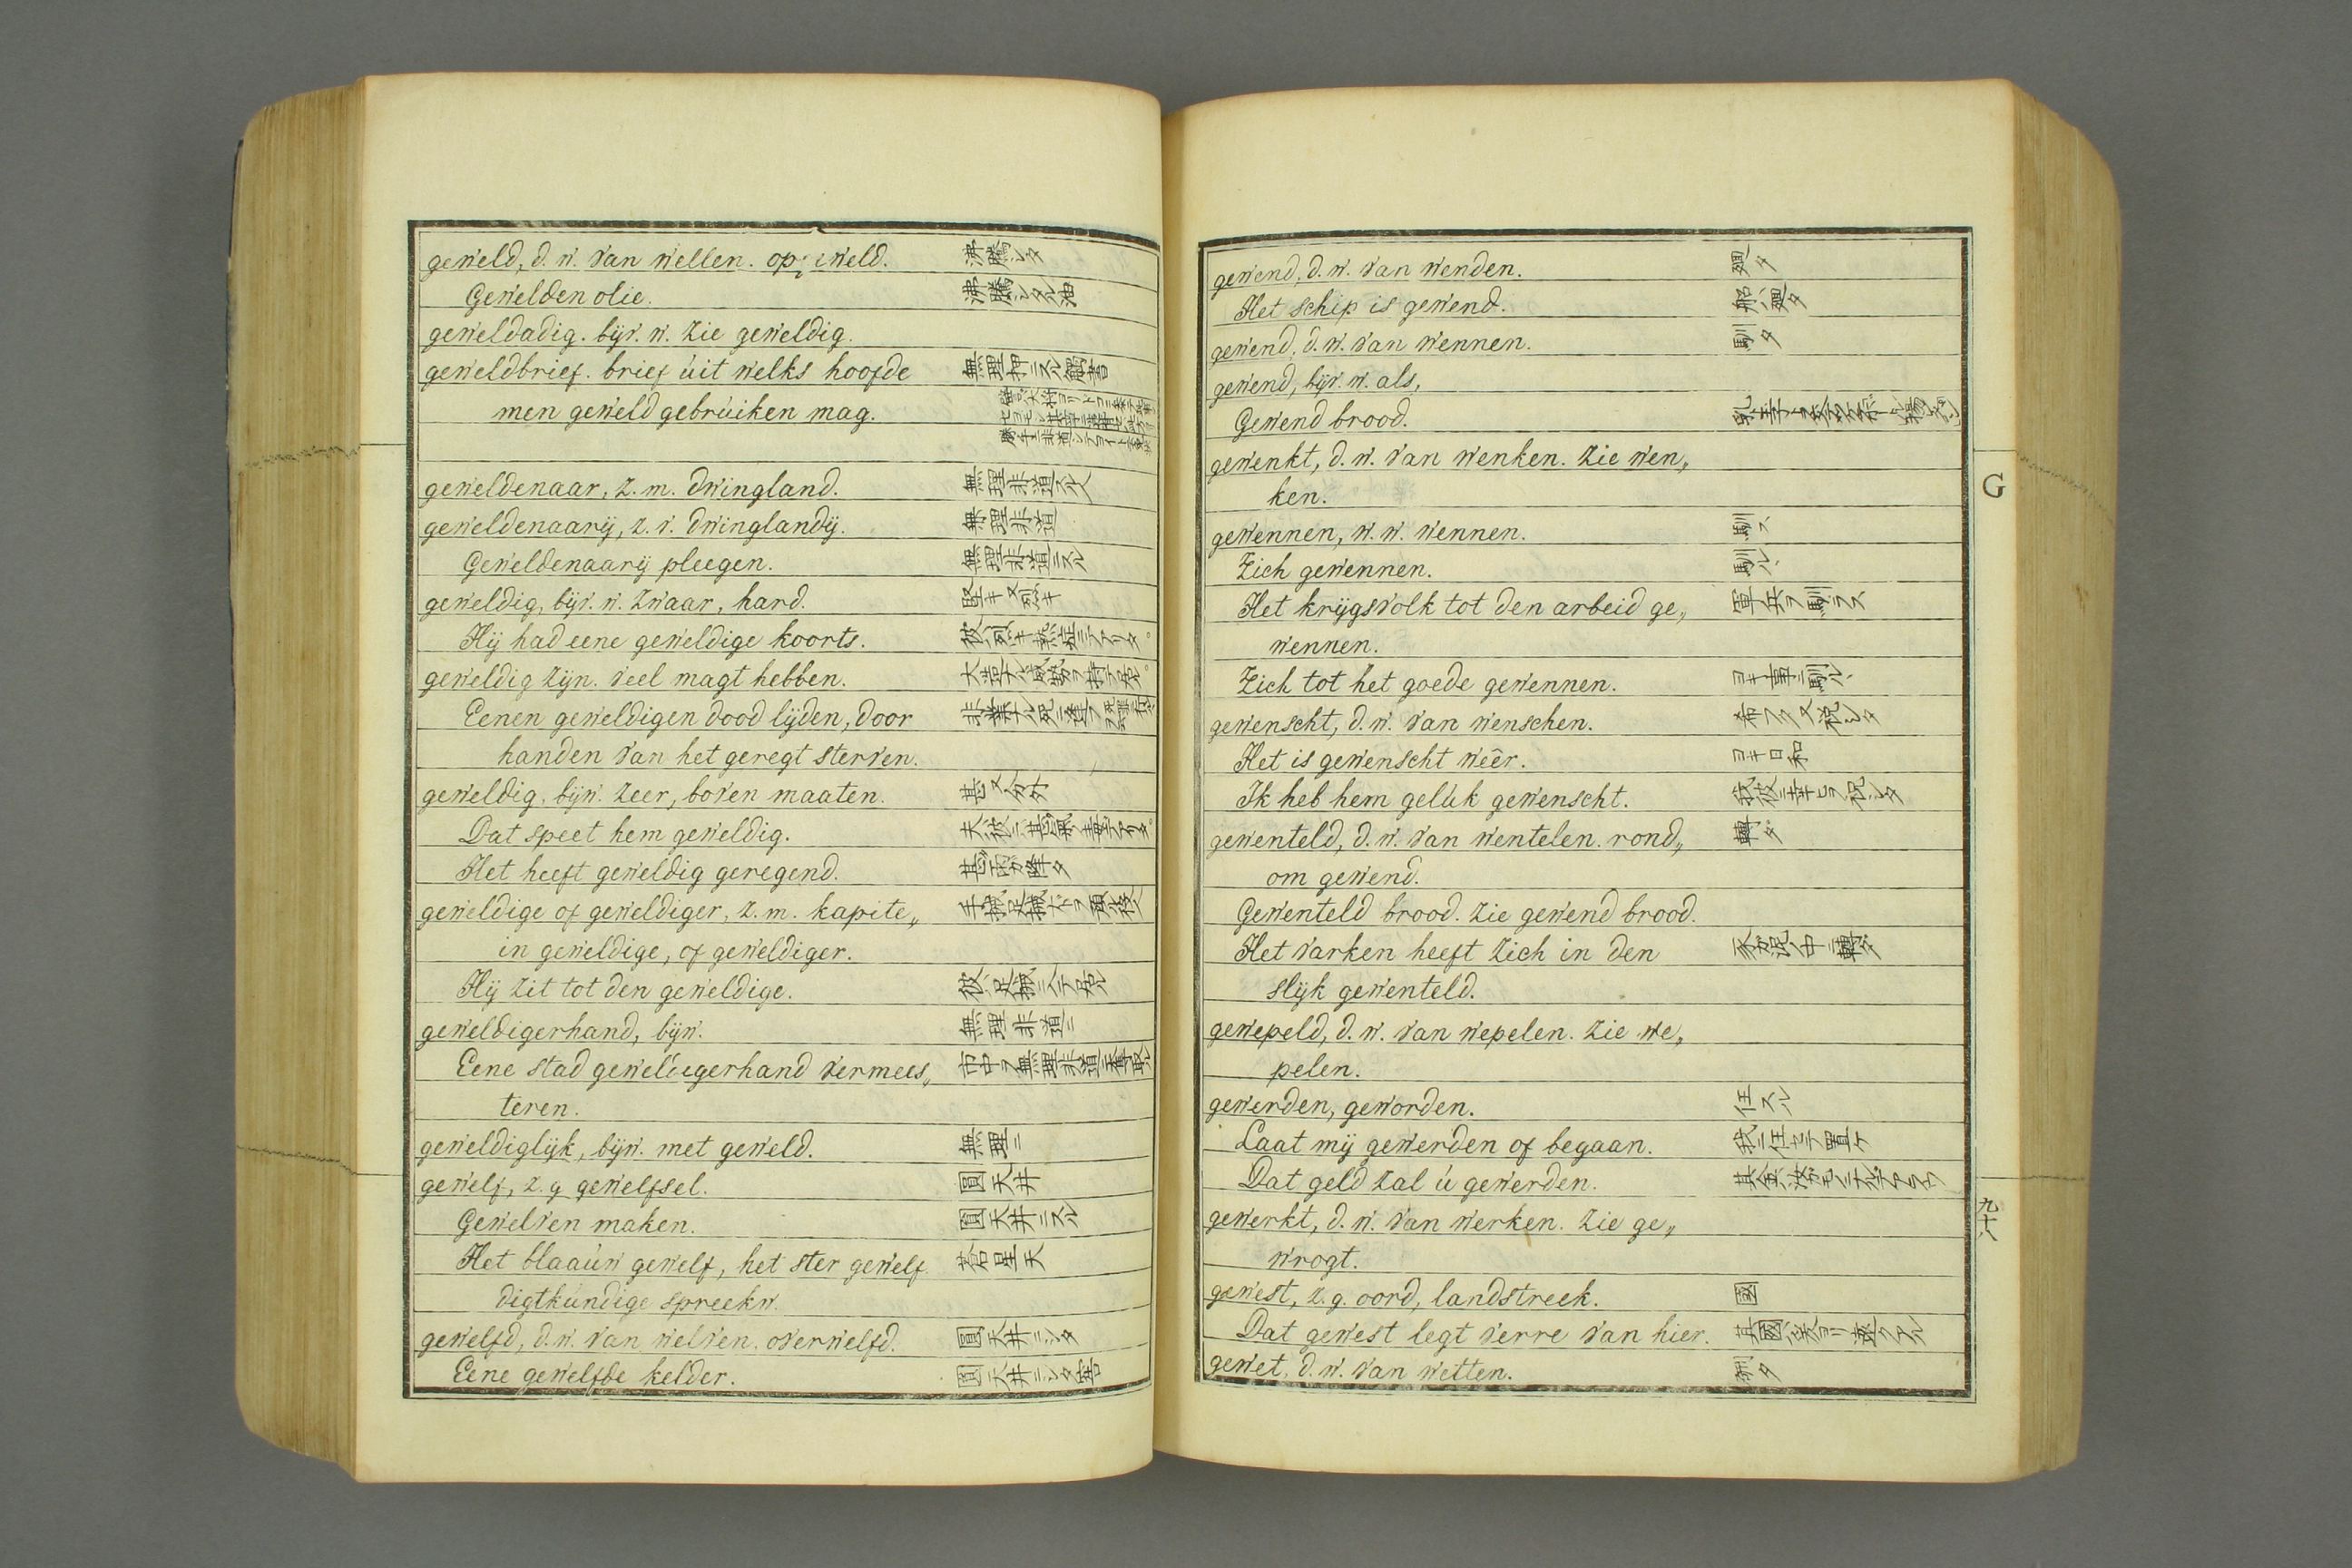 geweld, d. w. van wellen. weld. 沸騰シタ
Gewelden olie. 沸騰シタル油
geweldadig. bijv. w. zie geweldig.
geweldbrief. brief úit welks hoofde 無理押ニスル
men geweld gebrúiken mag.
geweldenaar, z. m. dwingland. 無理非道スル人
geweldenaarij, z. v. dwinglandij. 無理非道
Geweldenaarij pleegen. 無理非道ニスル
geweldig, bijv. w. zwaar, hard. 堅キ又烈キ
Hij had eene geweldige koorts. 彼ハ烈キ熱症ニテアリタ。
geweldig zijn. veel magt hebben. 大造ナル威勢ヲ持テ居ル。
Eenen geweldigen dood lijden, door 非業ナル死ニ逢フ
handen van het geregt sterven.
geweldig. bijw. zeer, boven maaten. 甚又分外
Dat speet hem geweldig.
Het heeft geweldig geregend. 甚雨ガ降タ
geweldige of geweldiger, z. m. kapite„
in geweldige, of geweldiger.
Hij zit tot den geweldige.
geweldigerhand, bijw. 無理非道ニ
Eene stad geweldigerhand vermees„ 市中ヲ無理非道ニ奪取ル
teren.
geweldiglijk, bijw. met geweld. 無理ニ
gewelf, z. g. gewelfsel. 圓天井
Gewelven maken. 圓天井ニスル
Het blaaúw gewelf, het ster gewelf. 蒼星天
digtkúndige spreekw.
gewelfd, d. w. van welven. overwelfd. 圓天井ニシタ
Eene gewelfde kelder. 圓天井ニシタ窖
gewend, d. w. van wenden. 廻タ
Het schip is gewend. 船ハ廻タ
gewend, d. w. van wennen. 馴タ
gewend, bijv. w. als,
Gewend brood.
gewenkt, d. w. van wenken. zie wen„
ken.
gewennen, w. w. wennen. 馴ス
Zich gewennen. 馴ル
Het krijgsvolk tot den arbeid ge„ 軍兵ヲ馴ラス
wennen.
Zich tot het goede gewennen. ヨキ事ニ馴ル
gewenscht, d. w. van wenschen. 希フタ又祝シタ
Het is gewenscht wêêr. ヨキ日和
Ik heb hem gelúk gewenscht. 我彼ニ幸ヒヲ祝シタ
gewenteld, d. w. van wentelen. rond„ 轉タ
om gewend.
Gewenteld brood. zie gewend brood.
Het varken heeft zich in den 豕ガ泥ノ中ニ轉タ
slijk gewenteld.
gewepeld, d. w. van wepelen. zie we„
pelen.
gewerden, geworden. 任スル
Laat mij gewerden of begaan. 我ニ任セテ置ケ
Dat geld zal ú gewerden.
gewerkt, d. w. van werken. zie ge„
wrogt.
gewest, z. g. oord, landstreek. 國
Dat gewest legt verre van hier. 其國ハ是ヨリ遠クアル
gewet, d. w. van wetten.
G
九十八